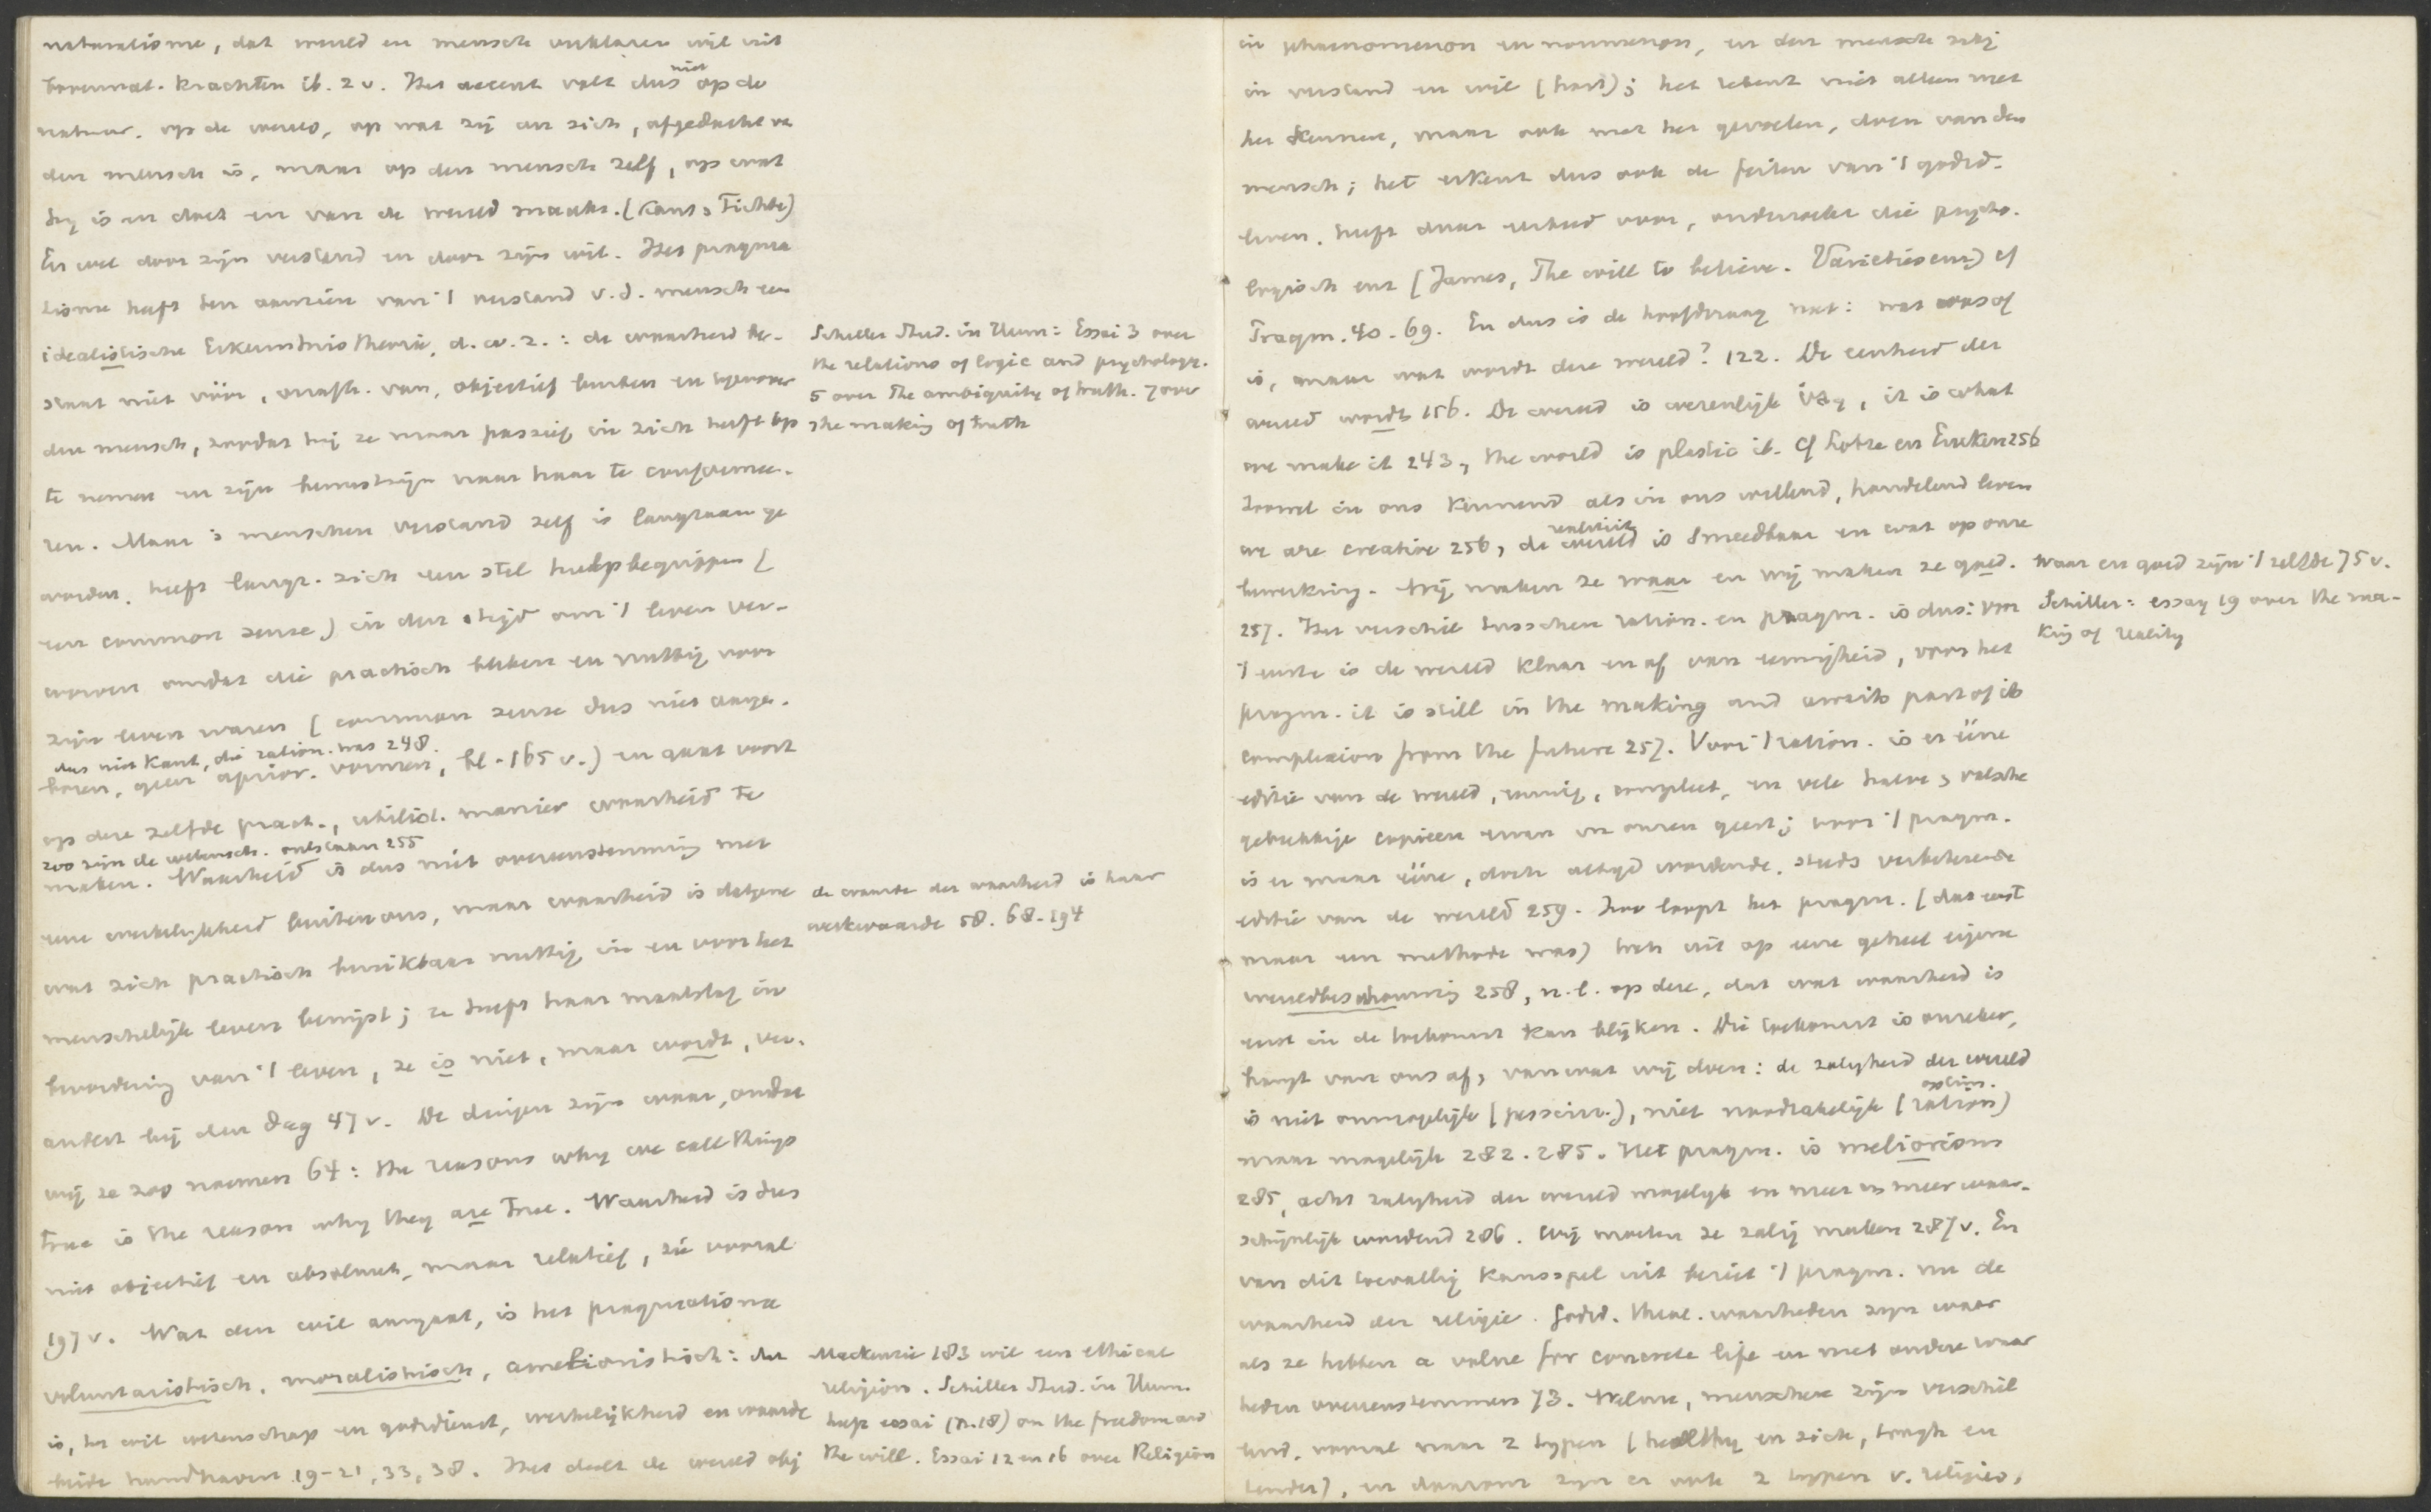 naturalisme, dat wereld en mensch verklaren wil uit
bovennat. krachten ib. 2 v. Het accent valt dus niet op de
natuur. op de wereld, op wat zij an sich, afgedacht v.
den mensch is, maar op den mensch zelf, op wat
hij is en doet en van de wereld maakt. (Kant, Fichte)
En wel door zijn verstand en door zijn wil. Het pragma
tisme heeft ten aanzien van 't verstand v.d. mensch een
idealistische Erkenntnistheorie, d.w.z.: de waarheid be-
staat niet vóór, onafh. van, objectief buiten en tegenover
den mensch, zoodat hij ze maar passief in zich heeft op
te nemen en zijn bewustzijn naar haar te conformee-
ren. Maar 's menschen verstand zelf is langzaam ge
worden, heeft langz. zich een stel hulpbegrippen (
een common sense) in den tijd om 't leven ver-
worven omdat die practisch bleken en nuttig voor
zijn leven waren (common sense dus niet aange-
dus niet Kant, die ration. was 248.
boren, geen aprior. vormen, bl. 165 v.) en gaat voort
op deze zelfde pract., utilist. manier waarheid te
zoo zijn de wetensch. ontstaan 255
maken. Waarheid is dus niet overeenstemming met
eene werkelijkheid buiten ons, maar waarheid is datgene
wat zich practisch bruikbaar nuttig in en voor het
menschelijk leven bewijst; ze heeft haar maatstaf in
bevordering van 't leven, ze is niet, maar wordt, ver-
andert bij den dag 47 v. De dingen zijn waar, omdat
wij ze zoo noemen 64: the reasons why we call things
true is the reason why they are true. Waarheid is dus
niet objectief en absoluut, maar relatief, zie vooral
197 v. Wat den wil aangaat, is het pragmatisme
voluntaristisch, moralistisch, amelioristisch: het
is, het wil wetenschap en godsdienst, werkelijkheid en waarde
beide handhaven 19-21, 33, 38. Het deelt de wereld obj
Schiller Stud. in Hum: Essai 3 over
the relations of logic and psychology.
5 over The ambiguity of truth. 7 over
the making of truth
de waarde der waarheid is haar
werkwaarde 58. 68. 194
Mackenzie 183 wil een ethical
religion. Schiller Stud. in Hum.
heeft essai (n. 18) on the freedom and
the will. Essai 12 en 16 over Religion
in phaenomenon en noumenon, en den mensch zelf
in verstand en wil (hart); het rekent niet alleen met
het kennen, maar ook met het gevoelen, doen van den
mensch; het erkent dus ook de feiten van 't godsd.-
leven, heeft daar waard voor, onderzoekt die psycho-
logisch enz (James, The will to believe. Varieties enz) cf
Pragm. 40. 69. En dus is de hoofdvraag niet: wat was of
is, maar wat wordt deze wereld? 122. De eenheid der
wereld wordt 156. De wereld is wezenlijk ὕλη, it is what
we make it 243, the world is plastic ib. cf Lotze en Eucken 256
Zoowel in ons kennend als in ons willend, handelend leven
we are creative 256, de realiteit is smeedbaar en wat op onze
bewerking. Wij maken ze waar en wij maken ze goed.
257. Het verschil tusschen ration. en pragm. is dus: voor
't eerste is de wereld klaar en af van eeuwigheid, voor het
pragm. it is still in the making and awaits part of its
complexion from the future 257. Voor 't ration. is er ééne
editie van de wereld, eeuwig, compleet, en vele halve, valsche
gebrekkige copieën ervan in onzen geest; voor 't pragm.
is er maar ééne, doch altijd wordende, steeds verbeterende
editie van de wereld 259. Zoo loopt het pragm. (dat eerst
maar een methode was) toch uit op eene geheel eigene
wereldbeschouwing 258, n.l. op deze, dat wat waarheid is
eerst in de toekomst kan blijken. Die toekomst is onzeker,
hangt van ons af, van wat wij doen: de zaligheid der wereld
is niet onmogelijk (pessim.), niet noodzakelijk (optim. ration)
maar mogelijk 282. 285. Het pragm. is meliorisme
285, acht zaligheid der wereld mogelijk en meer en meer waar-
schijnlijk wordend 286. Wij moeten ze zalig maken 287 v. En
van dit toevallig kansspel uit beziet 't pragm. nu de
waarheid der religie. Godsd. theol. waarheden zijn waar
als ze hebben a value for concrete life en met andere waar
heden overeenstemmen 73. Welnu, menschen zijn verschil
lend, vooral naar 2 typen (healthy en sick, tough en
tender), en daarom zijn er ook 2 typen v. religie,
waar en goed zijn 't zelfde 75 v.
Schiller: essay 19 over the ma-
king of reality